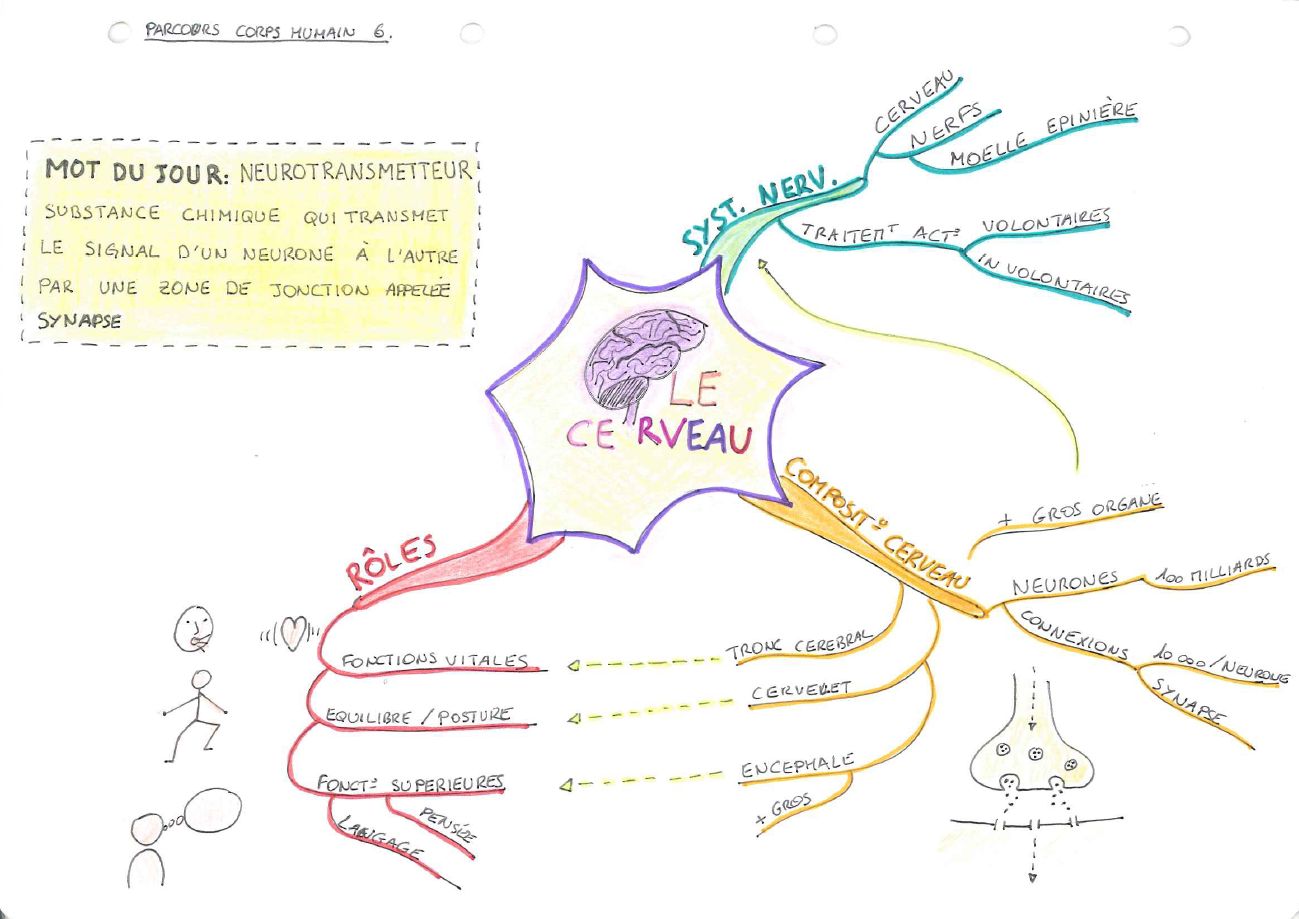 PARCOURS CORPS HUMAIN 6.
MOT DU JOUR: NEUROTRANSMETTEUR
SUBSTANCE CHIMIQUE QUI TRANSMET
LE SIGNAL D'UN NEURONE À L'AUTRE
PAR UNE ZONE DE JONCTION APPELÉE
SYNAPSE
LE
CERVEAU
SYST. NERV.
CERVEAU
NERFS
MOELLE EPINIÈRE
TRAITEMT ACT°
VOLONTAIRES
INVOLONTAIRES
COMPOSIT° CERVEAU
+ GROS ORGANE
NEURONES
100 MILLIARDS
CONNEXIONS
10 000/NEURONE
SYNAPSE
TRONC CEREBRAL
CERVELET
ENCEPHALE
+ GROS
RÔLES
FONCTIONS VITALES
EQUILIBRE / POSTURE
FONCT° SUPERIEURES
PENSÉE
LANGAGE